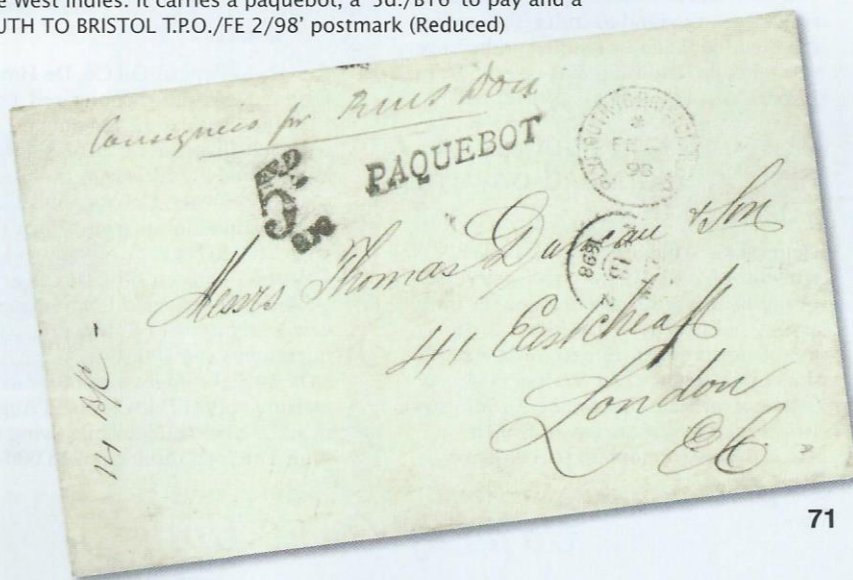 e West Indies. It carries a paquebot, a '5d./BTO' to pay and a
UTH TO BRISTOL T.P.O./FE 2/98' postmark (Reduced)
Consignees per RMS Don
5D
PAQUEBOT
98
Messrs Thomas Duncan & Son
1898
41 Eastcheap
London
EC.
14 B/L -
71